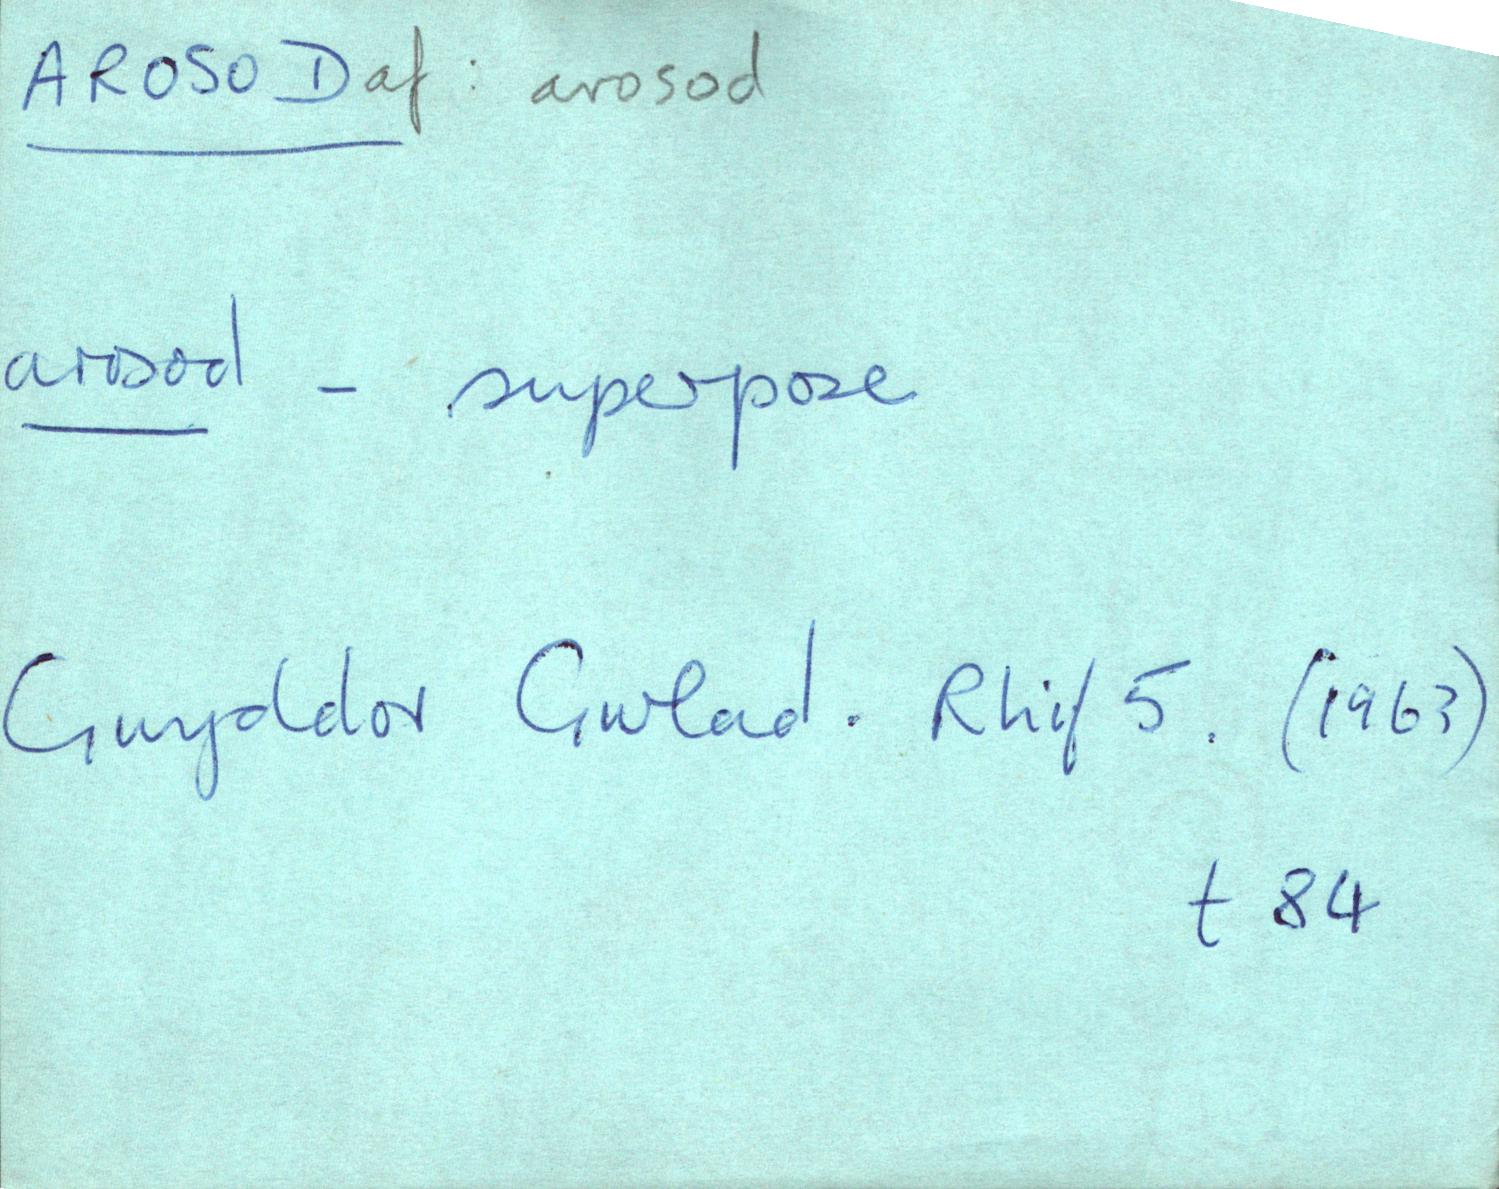 AROSODaf: arosod
arosod - superpose
Gwyddor Gwlad. Rhif 5. (1963)
t 84